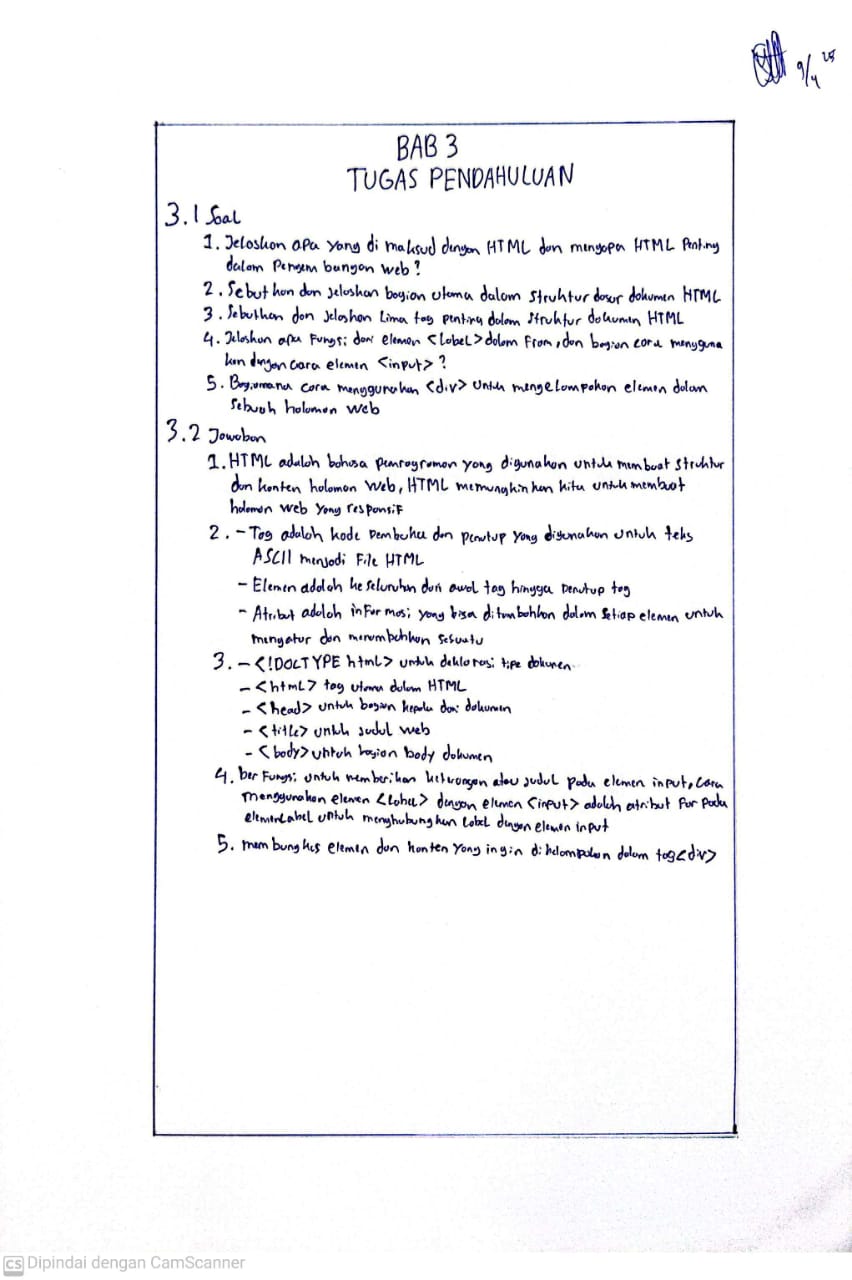 9/4 25
BAB 3
TUGAS PENDAHULUAN
3.1 Soal
1. Jelaskan apa yang di maksud dengan HTML dan mengapa HTML Penting
dalam Pengem bangan web?
2. Sebut kan dan jelaskan bagian utama dalam struktur dasar dokumen HTML
3. Sebutkan dan jelaskan Lima tag penting dalam struktur dokumen HTML
4. Jelaskan apa Fungsi dari elemen <label> dalam From, dan bagian cara mengguna
kan dengan cara elemen <input>?
5. Bagaimana cara menggunakan <div> untuk mengelompokan elemen dalam
sebuah halaman web
3.2 Jawaban
1. HTML adalah bahasa pemrograman yang digunakan untuk membuat struktur
dan konten halaman web, HTML memungkinkan kita untuk membuat
halaman web yang responsif
2. - Tag adalah kode pembuka dan penutup yang digunakan untuk teks
ASCII menjadi File HTML
- Elemen adalah keseluruhan dari awal tag hingga penutup tag
- Atribut adalah informasi yang bisa ditambahkan dalam setiap elemen untuk
mengatur dan menambahkan sesuatu
3. - <!DOCTYPE html> untuk deklarasi tipe dokumen
- <html> tag utama dalam HTML
- <head> untuk bagian kepala dari dokumen
- <title> untuk judul web
- <body> untuk bagian body dokumen
4. ber Fungsi untuk memberikan keterangan atau judul pada elemen input, cara
menggunakan elemen <label> dengan elemen <input> adalah atribut for pada
elemen label untuk menghubungkan label dengan elemen input
5. mem bungkus elemen dan konten yang ingin di kelompokan dalam tag <div>
CS Dipindai dengan CamScanner